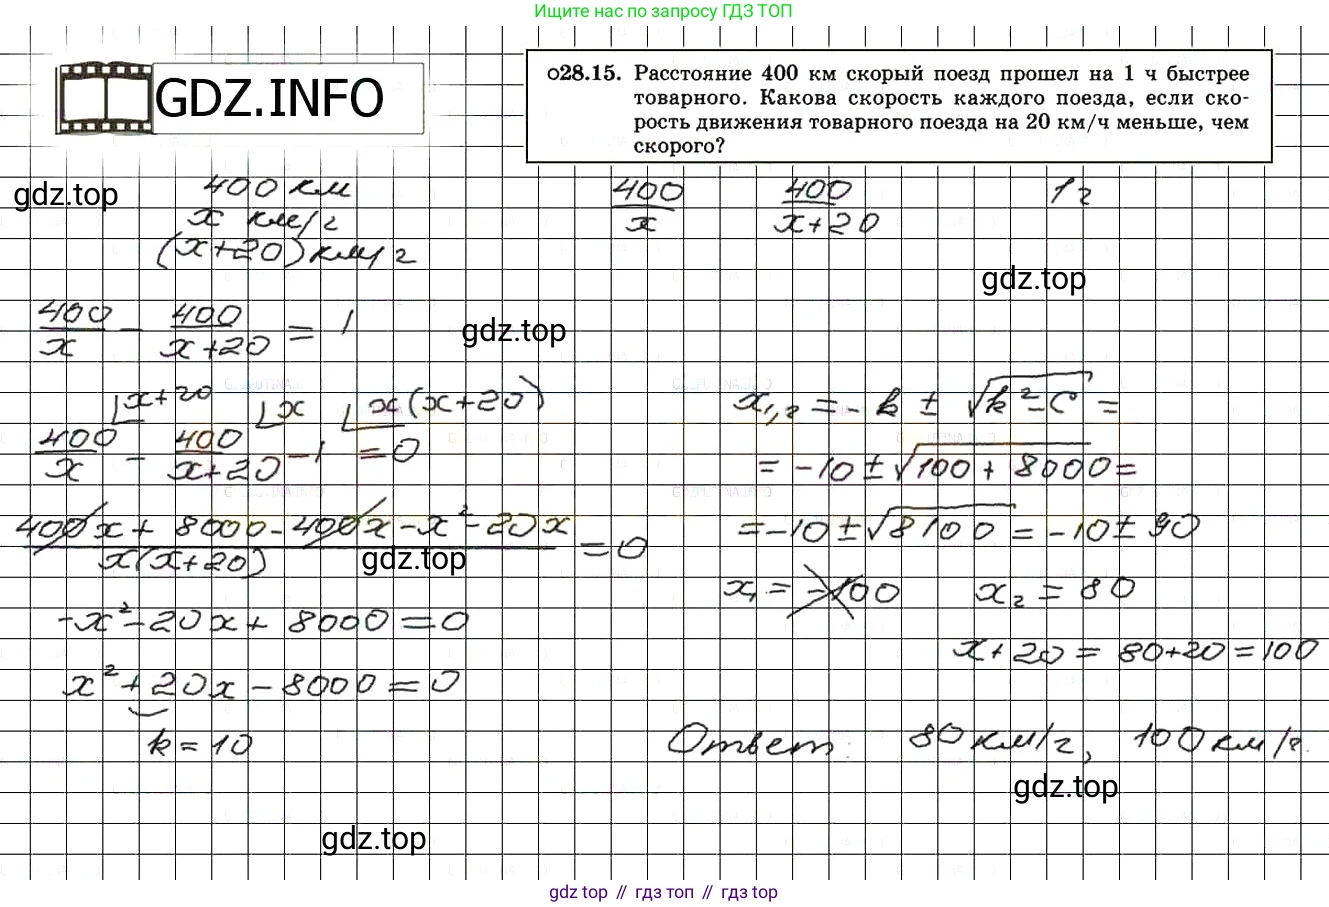 Ищите нас по запросу ГДЗ ТОП
GDZ.INFO
28.15. Расстояние 400 км скорый поезд прошел на 1 ч быстрее
товарного. Какова скорость каждого поезда, если ско-
рость движения товарного поезда на 20 км/ч меньше, чем
скорого?
gdz.top
400 км
x км/ч
(x+20) км/ч
400/x 400/(x+20) 1 ч
gdz.top
400/x - 400/(x+20) = 1
gdz.top
x+20 x x(x+20)
400/x - 400/(x+20) - 1 = 0
(400x + 8000 - 400x - x² - 20x)/(x(x+20)) = 0
gdz.top
-x² - 20x + 8000 = 0
x² + 20x - 8000 = 0
k = 10
x₁,₂ = -k ± √(k² - c) =
= -10 ± √(100 + 8000) =
= -10 ± √8100 = -10 ± 90
x₁ = -100 x₂ = 80
x+20 = 80+20 = 100
Ответ: 80 км/ч, 100 км/ч.
gdz.top
gdz.top
gdz top // гдз топ // гдз top